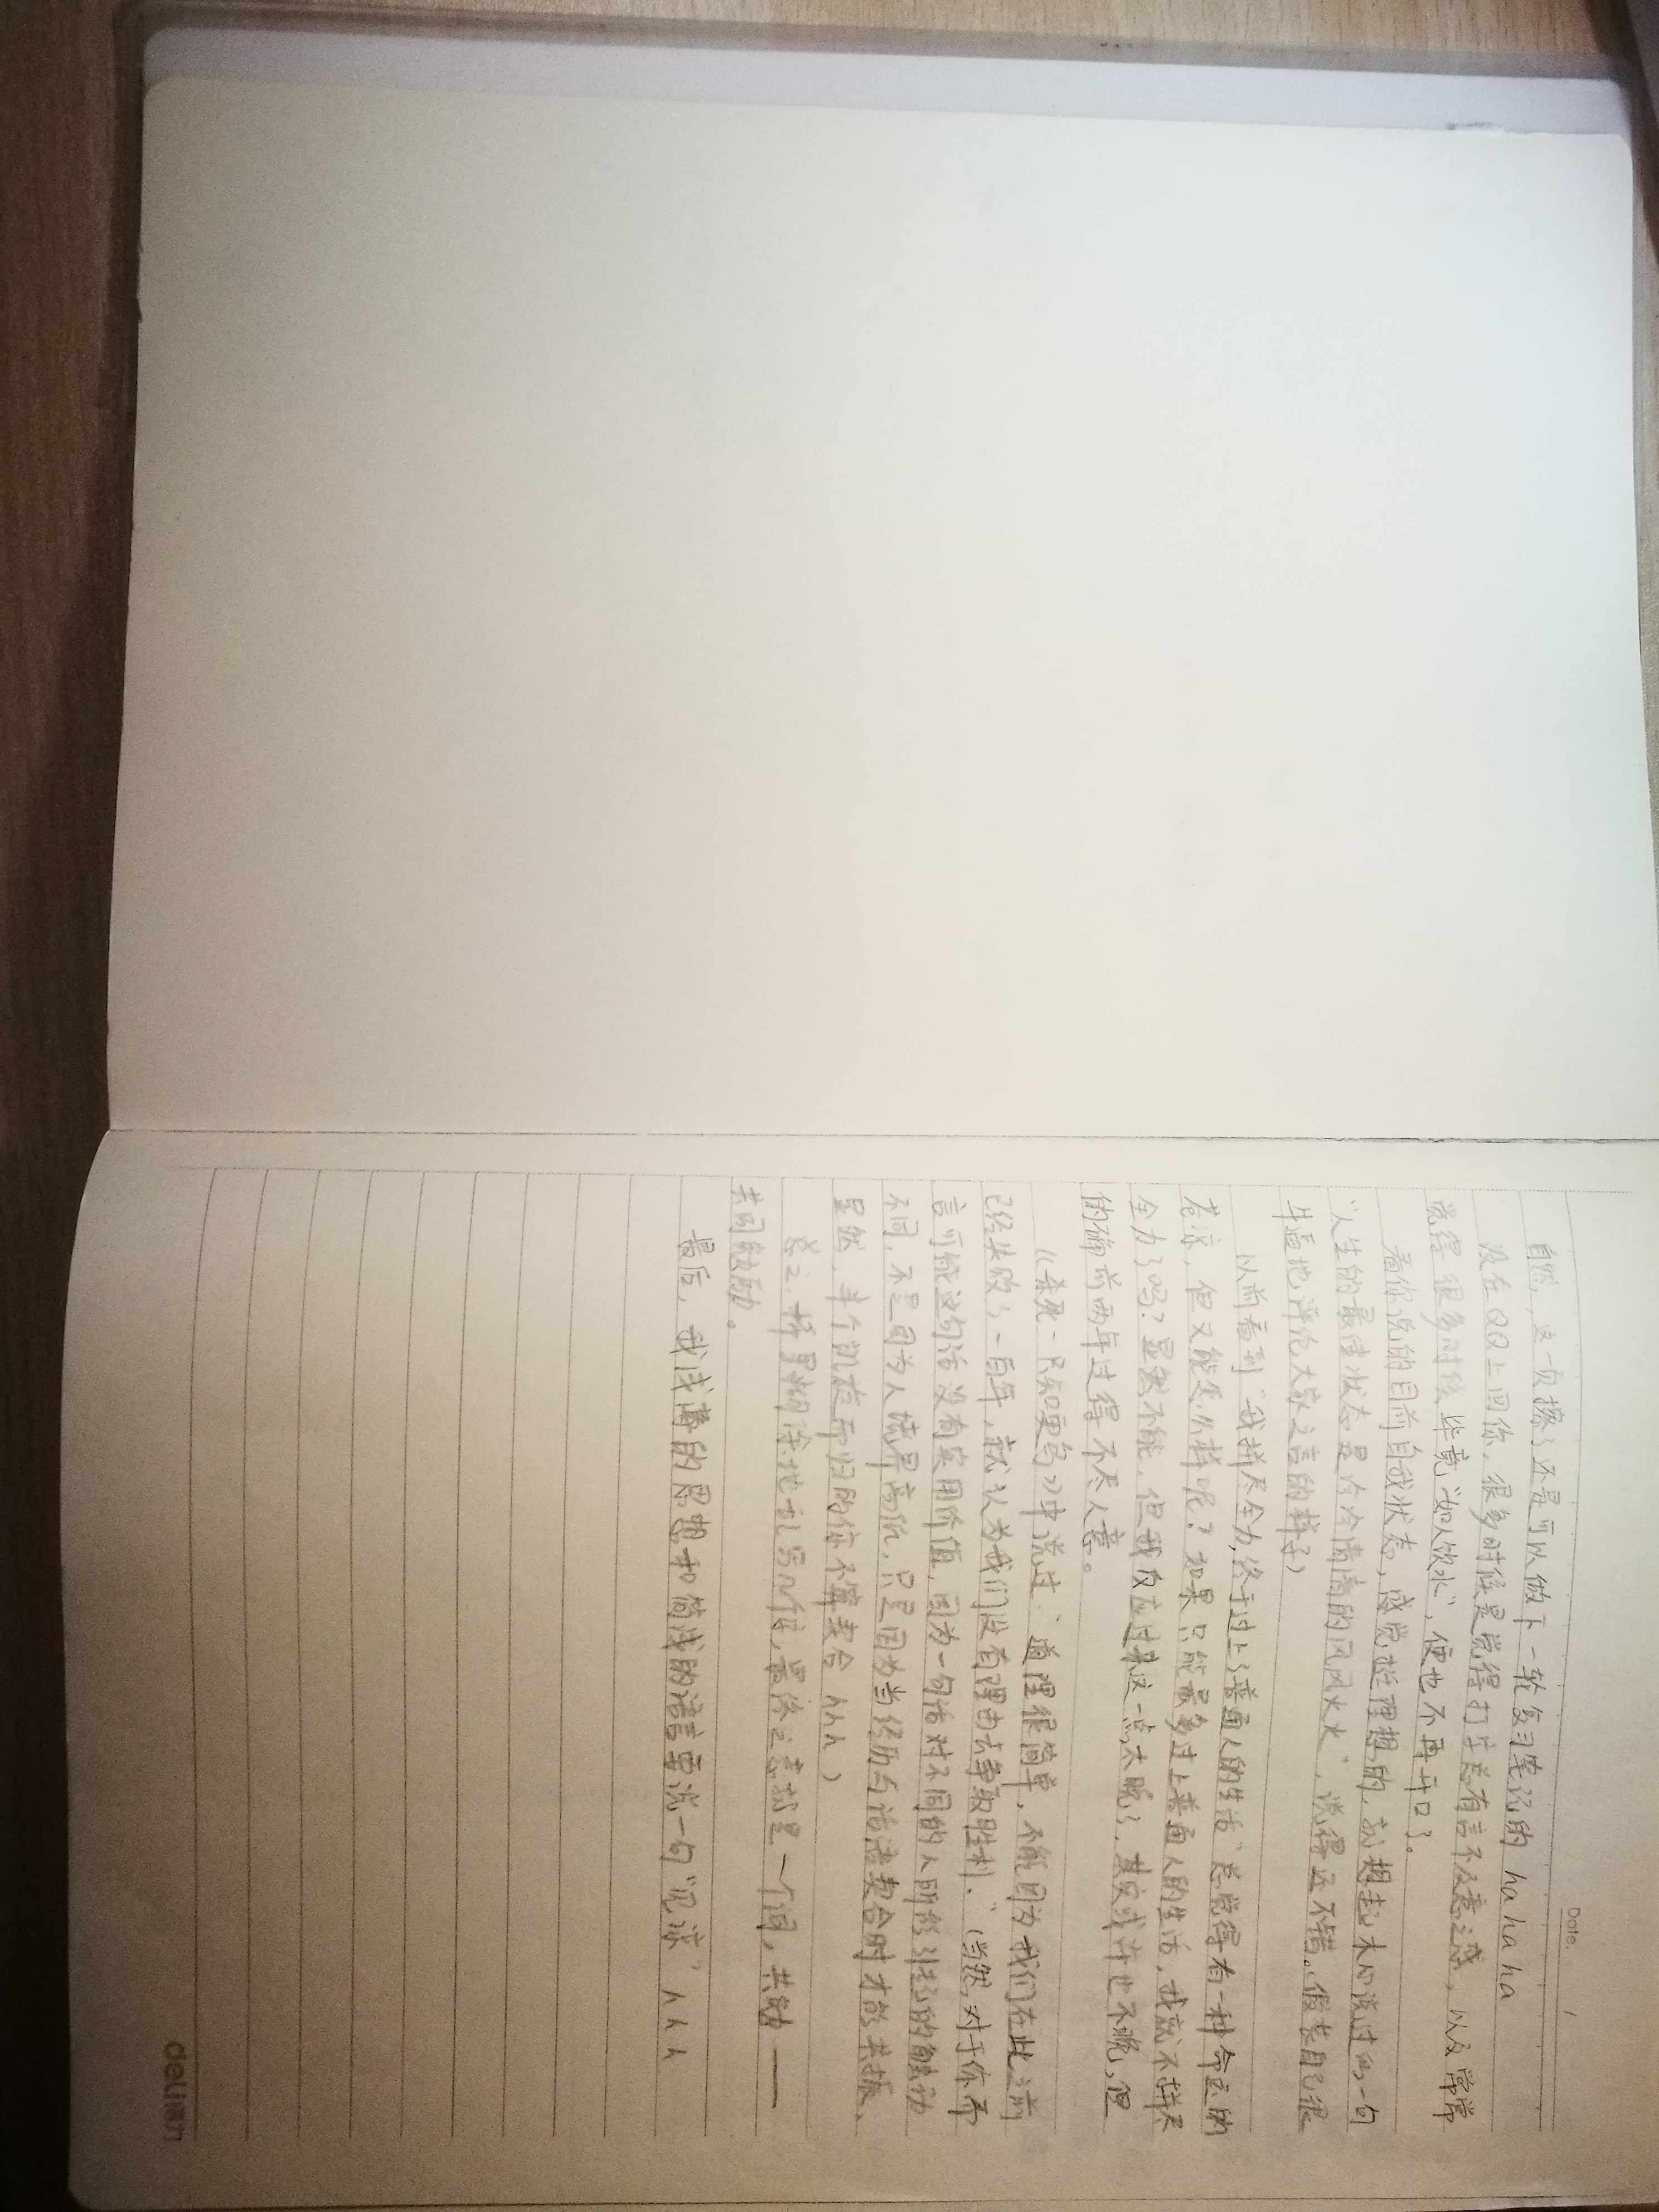 Date.  /
自然，这一页擦了还是可以做下一轮复习笔记的 ha ha ha
没在QQ上回你，很多时候是觉得打字总有言不及意之感，以及常常
觉得很多时候，毕竟“如人饮水”，便也不再开口了。
看你说的目前自我状态，感觉挺理想的，就想起木心说过的一句
“人生的最佳状态是冷冷清清的风风火火”，说得还不错。（假装自己很
牛逼地评论大家之言的样子）
以前看到“我拼尽全力，终于过上了普通人的生活”总觉得有一种命运的
苍凉，但又能怎么样呢？如果只能最多过上普通人的生活，我就不拼尽
全力了吗？显然不能，但我反应过来这一点太晚了，其实或许也不晚，但
的确前两年过得不尽人意。
《杀死一只知更鸟》中说过：“道理很简单，不能因为我们在此之前
已经失败了一百年，就认为我们没有理由去争取胜利。”（当然，对于你而
言可能这句话没有实用价值，因为一句话对不同的人所能引起的触动
不同，不是因为人境界高低，只是因为当经历与话语契合时才能共振，
显然，丰收而归的你不算契合 hhh）
总之，挺冗余地乱写一通，最终之意就是一个词，共勉——
共同勉励。
最后，我浅薄的思想和简浅的语言要说一句“见谅” hhh
deli得力